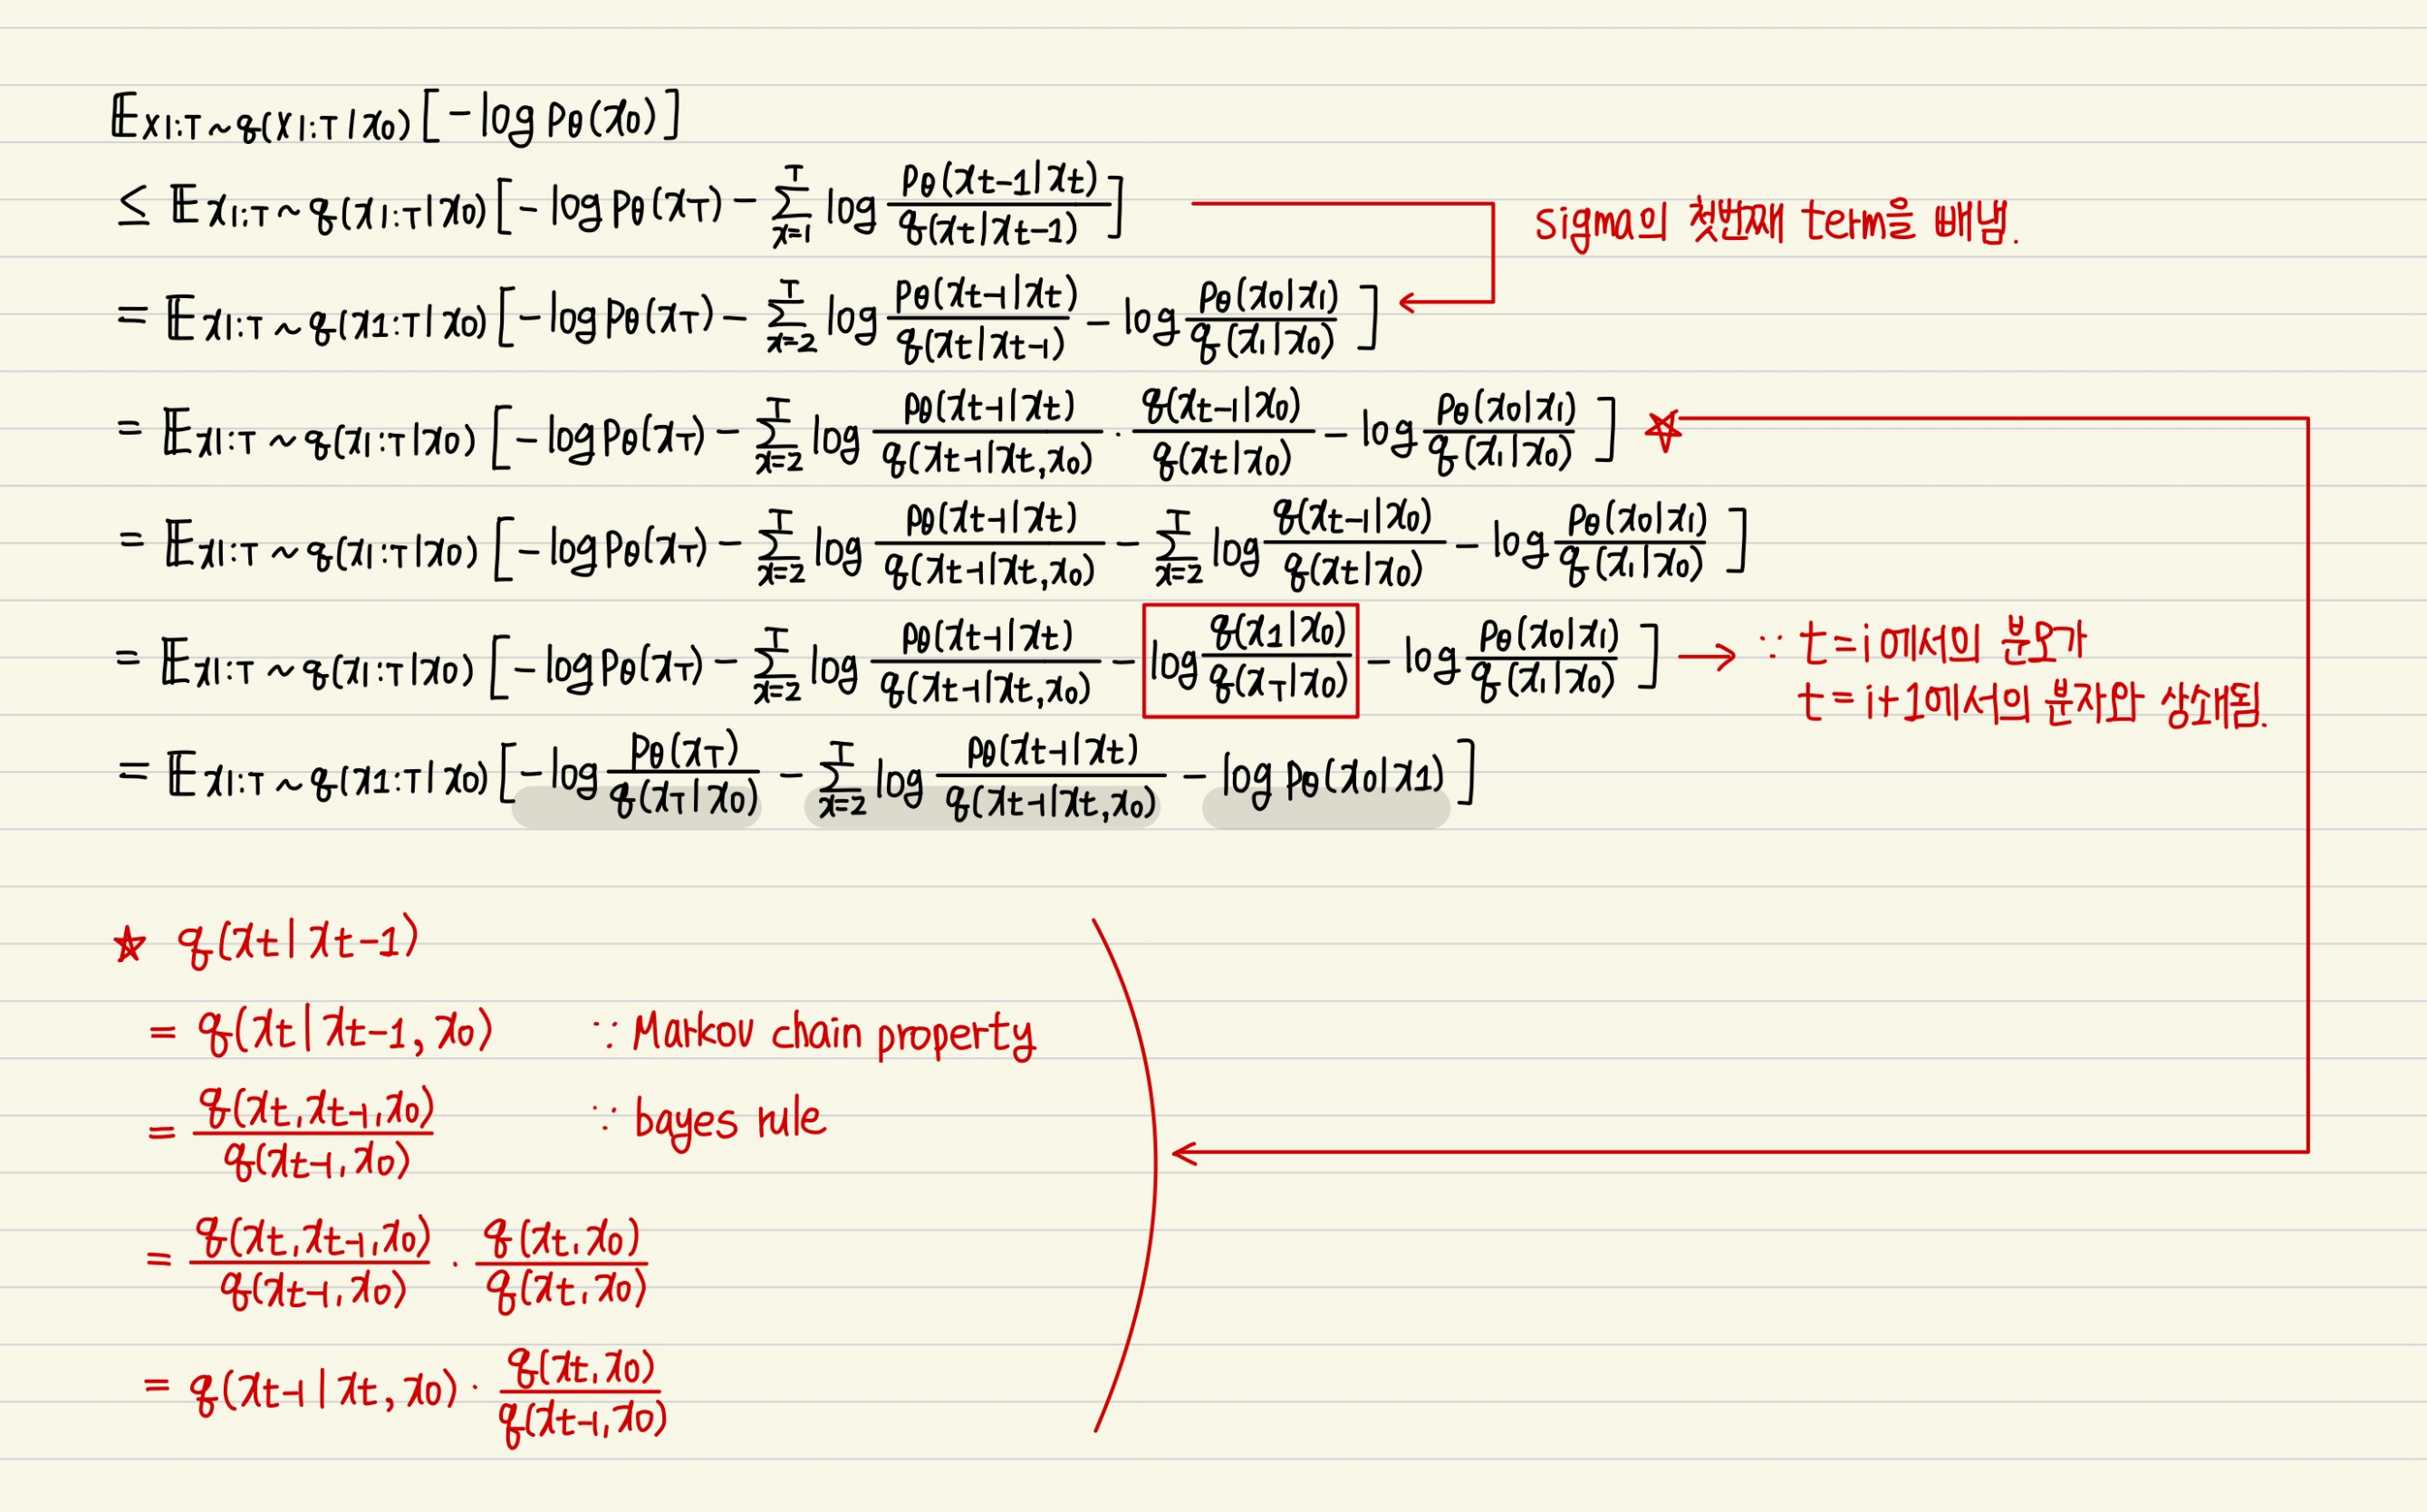 E_{x1:T∼q(x1:T|x0)}[−log pθ(x0)]
≤ E_{x1:T∼q(x1:T|x0)}[−log pθ(xT) − Σ_{x=1}^{T} log pθ(xt−1|xt) / q(xt|xt−1)] sigma의 첫번째 term을 빼냄.
= E_{x1:T∼q(x1:T|x0)}[−log pθ(xT) − Σ_{x=2}^{T} log pθ(xt−1|xt) / q(xt|xt−1) − log pθ(x0|x1) / q(x1|x0)]
= E_{x1:T∼q(x1:T|x0)}[−log pθ(xT) − Σ_{x=2}^{T} log pθ(xt−1|xt) / q(xt−1|xt,x0) · q(xt−1|x0) / q(xt|x0) − log pθ(x0|x1) / q(x1|x0)] ☆
= E_{x1:T∼q(x1:T|x0)}[−log pθ(xT) − Σ_{x=2}^{T} log pθ(xt−1|xt) / q(xt−1|xt,x0) − Σ_{x=2}^{T} log q(xt−1|x0) / q(xt|x0) − log pθ(x0|x1) / q(x1|x0)]
= E_{x1:T∼q(x1:T|x0)}[−log pθ(xT) − Σ_{x=2}^{T} log pθ(xt−1|xt) / q(xt−1|xt,x0) − log q(x1|x0) / q(xT|x0) − log pθ(x0|x1) / q(x1|x0)] → ∵ t=i에서의 분모가
t=i+1에서의 분자와 상쇄됨.
= E_{x1:T∼q(x1:T|x0)}[−log pθ(xT) / q(xT|x0) − Σ_{x=2}^{T} log pθ(xt−1|xt) / q(xt−1|xt,x0) − log pθ(x0|x1)]
☆ q(xt|xt−1)
= q(xt|xt−1, x0) ∵ Markov chain property
= q(xt,xt−1,x0) / q(xt−1,x0) ∵ bayes rule
= q(xt,xt−1,x0) / q(xt−1,x0) · q(xt,x0) / q(xt,x0)
= q(xt−1|xt,x0) · q(xt,x0) / q(xt−1,x0)